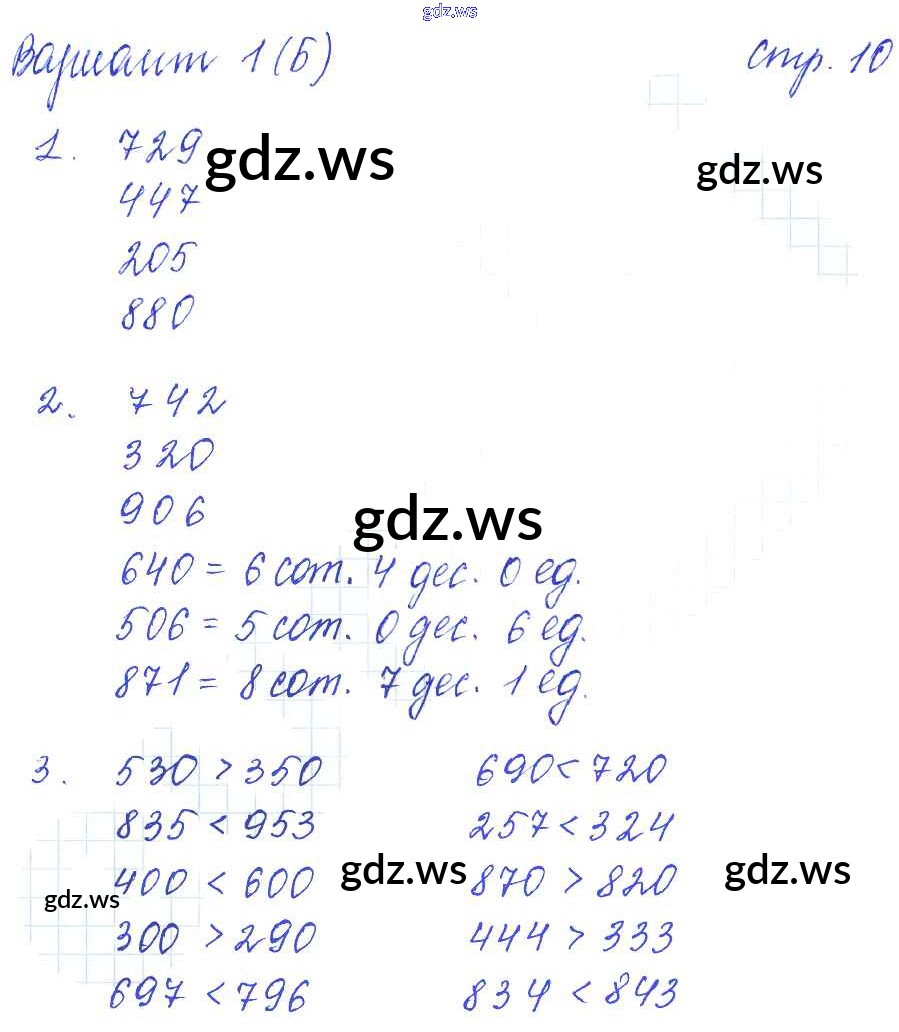 gdz.ws
Вариант 1(Б) стр. 10
1. 729 gdz.ws gdz.ws
447
205
880
2. 742
320
906 gdz.ws
640 = 6 сот. 4 дес. 0 ед.
506 = 5 сот. 0 дес. 6 ед.
871 = 8 сот. 7 дес. 1 ед.
3. 530 > 350 690 < 720
835 < 953 257 < 324
400 < 600 gdz.ws 870 > 820 gdz.ws
gdz.ws
300 > 290 444 > 333
697 < 796 834 < 843